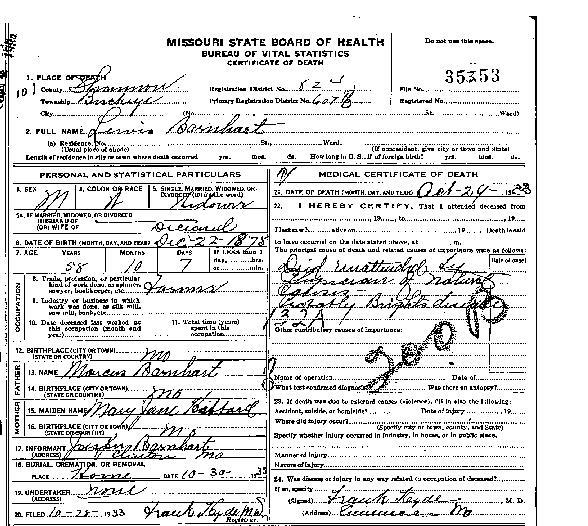 MISSOURI STATE BOARD OF HEALTH
BUREAU OF VITAL STATISTICS
CERTIFICATE OF DEATH
Do not use this space.
35353
1. PLACE OF DEATH
County Shannon
Registration District No. 
File No.
Township
Primary Registration District No.
Registered No.
City (No. St. Ward)
2. FULL NAME Lewis Barnhart
(a) Residence, No. St., Ward.
(Usual place of abode) (If nonresident, give city or town and State)
Length of residence in city or town where death occurred yrs. mos. ds. How long in U. S., if of foreign birth? yrs. mos. ds.
PERSONAL AND STATISTICAL PARTICULARS
3. SEX M
4. COLOR OR RACE W
5. SINGLE, MARRIED, WIDOWED, OR DIVORCED (write the word) Widower
5A. IF MARRIED, WIDOWED, OR DIVORCED
HUSBAND OF
(OR) WIFE OF
6. DATE OF BIRTH (MONTH, DAY, AND YEAR) Dec-22-1875
7. AGE YEARS MONTHS DAYS If LESS than 1 day, hrs. or min.
58 10 7
OCCUPATION
8. Trade, profession, or particular kind of work done, as spinner, sawyer, bookkeeper, etc. Farmer
9. Industry or business in which work was done, as silk mill, saw mill, bank, etc.
10. Date deceased last worked at this occupation (month and year)
11. Total time (years) spent in this occupation
12. BIRTHPLACE (CITY OR TOWN) Mo
(STATE OR COUNTRY)
FATHER
13. NAME Marcus Barnhart
14. BIRTHPLACE (CITY OR TOWN) Mo
(STATE OR COUNTRY)
MOTHER
15. MAIDEN NAME Mary Jane
16. BIRTHPLACE (CITY OR TOWN) Mo
(STATE OR COUNTRY)
17. INFORMANT Barnhart
(ADDRESS) Mo
18. BURIAL, CREMATION, OR REMOVAL
PLACE DATE 10-30-
19. UNDERTAKER none
(ADDRESS)
20. FILED 10-28-1933 Frank Hyde MD
Registrar.
MEDICAL CERTIFICATE OF DEATH
21. DATE OF DEATH (MONTH, DAY, AND YEAR) Oct-29-1933
22. I HEREBY CERTIFY, That I attended deceased from
, 19 , to , 19
I last saw h alive on , 19 Death is said
to have occurred on the date stated above, at m.
The principal cause of death and related causes of importance were as follows:
Date of onset
Died unattended by
Physician
Brights
132A
Other contributory causes of importance:
Name of operation Date of
What test confirmed diagnosis? Was there an autopsy?
23. If death was due to external causes (violence), fill in also the following:
Accident, suicide, or homicide? Date of injury , 19
Where did injury occur?
(Specify city or town, county, and State)
Specify whether injury occurred in industry, in home, or in public place.
Manner of injury
Nature of injury
24. Was disease or injury in any way related to occupation of deceased?
If so, specify
(Signed) Frank Hyde, M. D.
(Address) Eminence Mo